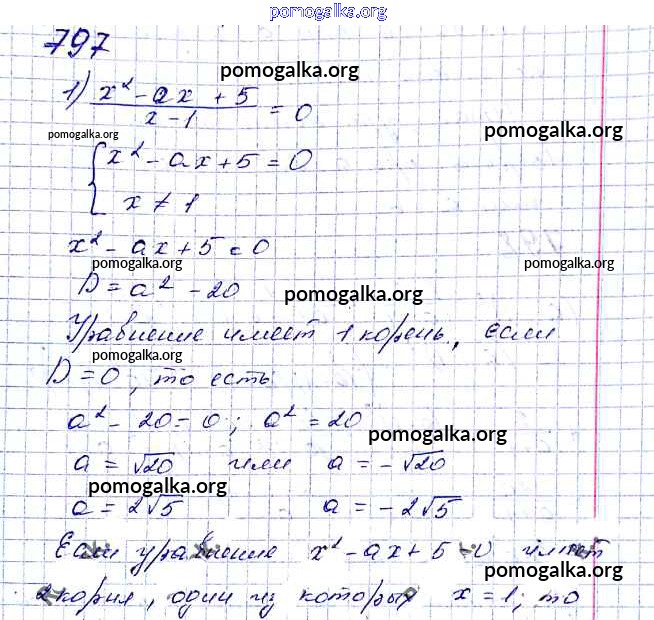 pomogalka.org
797
pomogalka.org
1) x² - ax + 5 / x - 1 = 0
pomogalka.org
pomogalka.org
{ x² - ax + 5 = 0
x ≠ 1
x² - ax + 5 = 0
pomogalka.org pomogalka.org
D = a² - 20
pomogalka.org
Уравнение имеет 1 корень, если
pomogalka.org
D = 0, то есть
a² - 20 = 0; a² = 20
pomogalka.org
a = √20 или a = -√20
pomogalka.org
a = 2√5 a = -2√5
Если уравнение x² - ax + 5 = 0 имеет
pomogalka.org
2 корня, один из которых x = 1, то